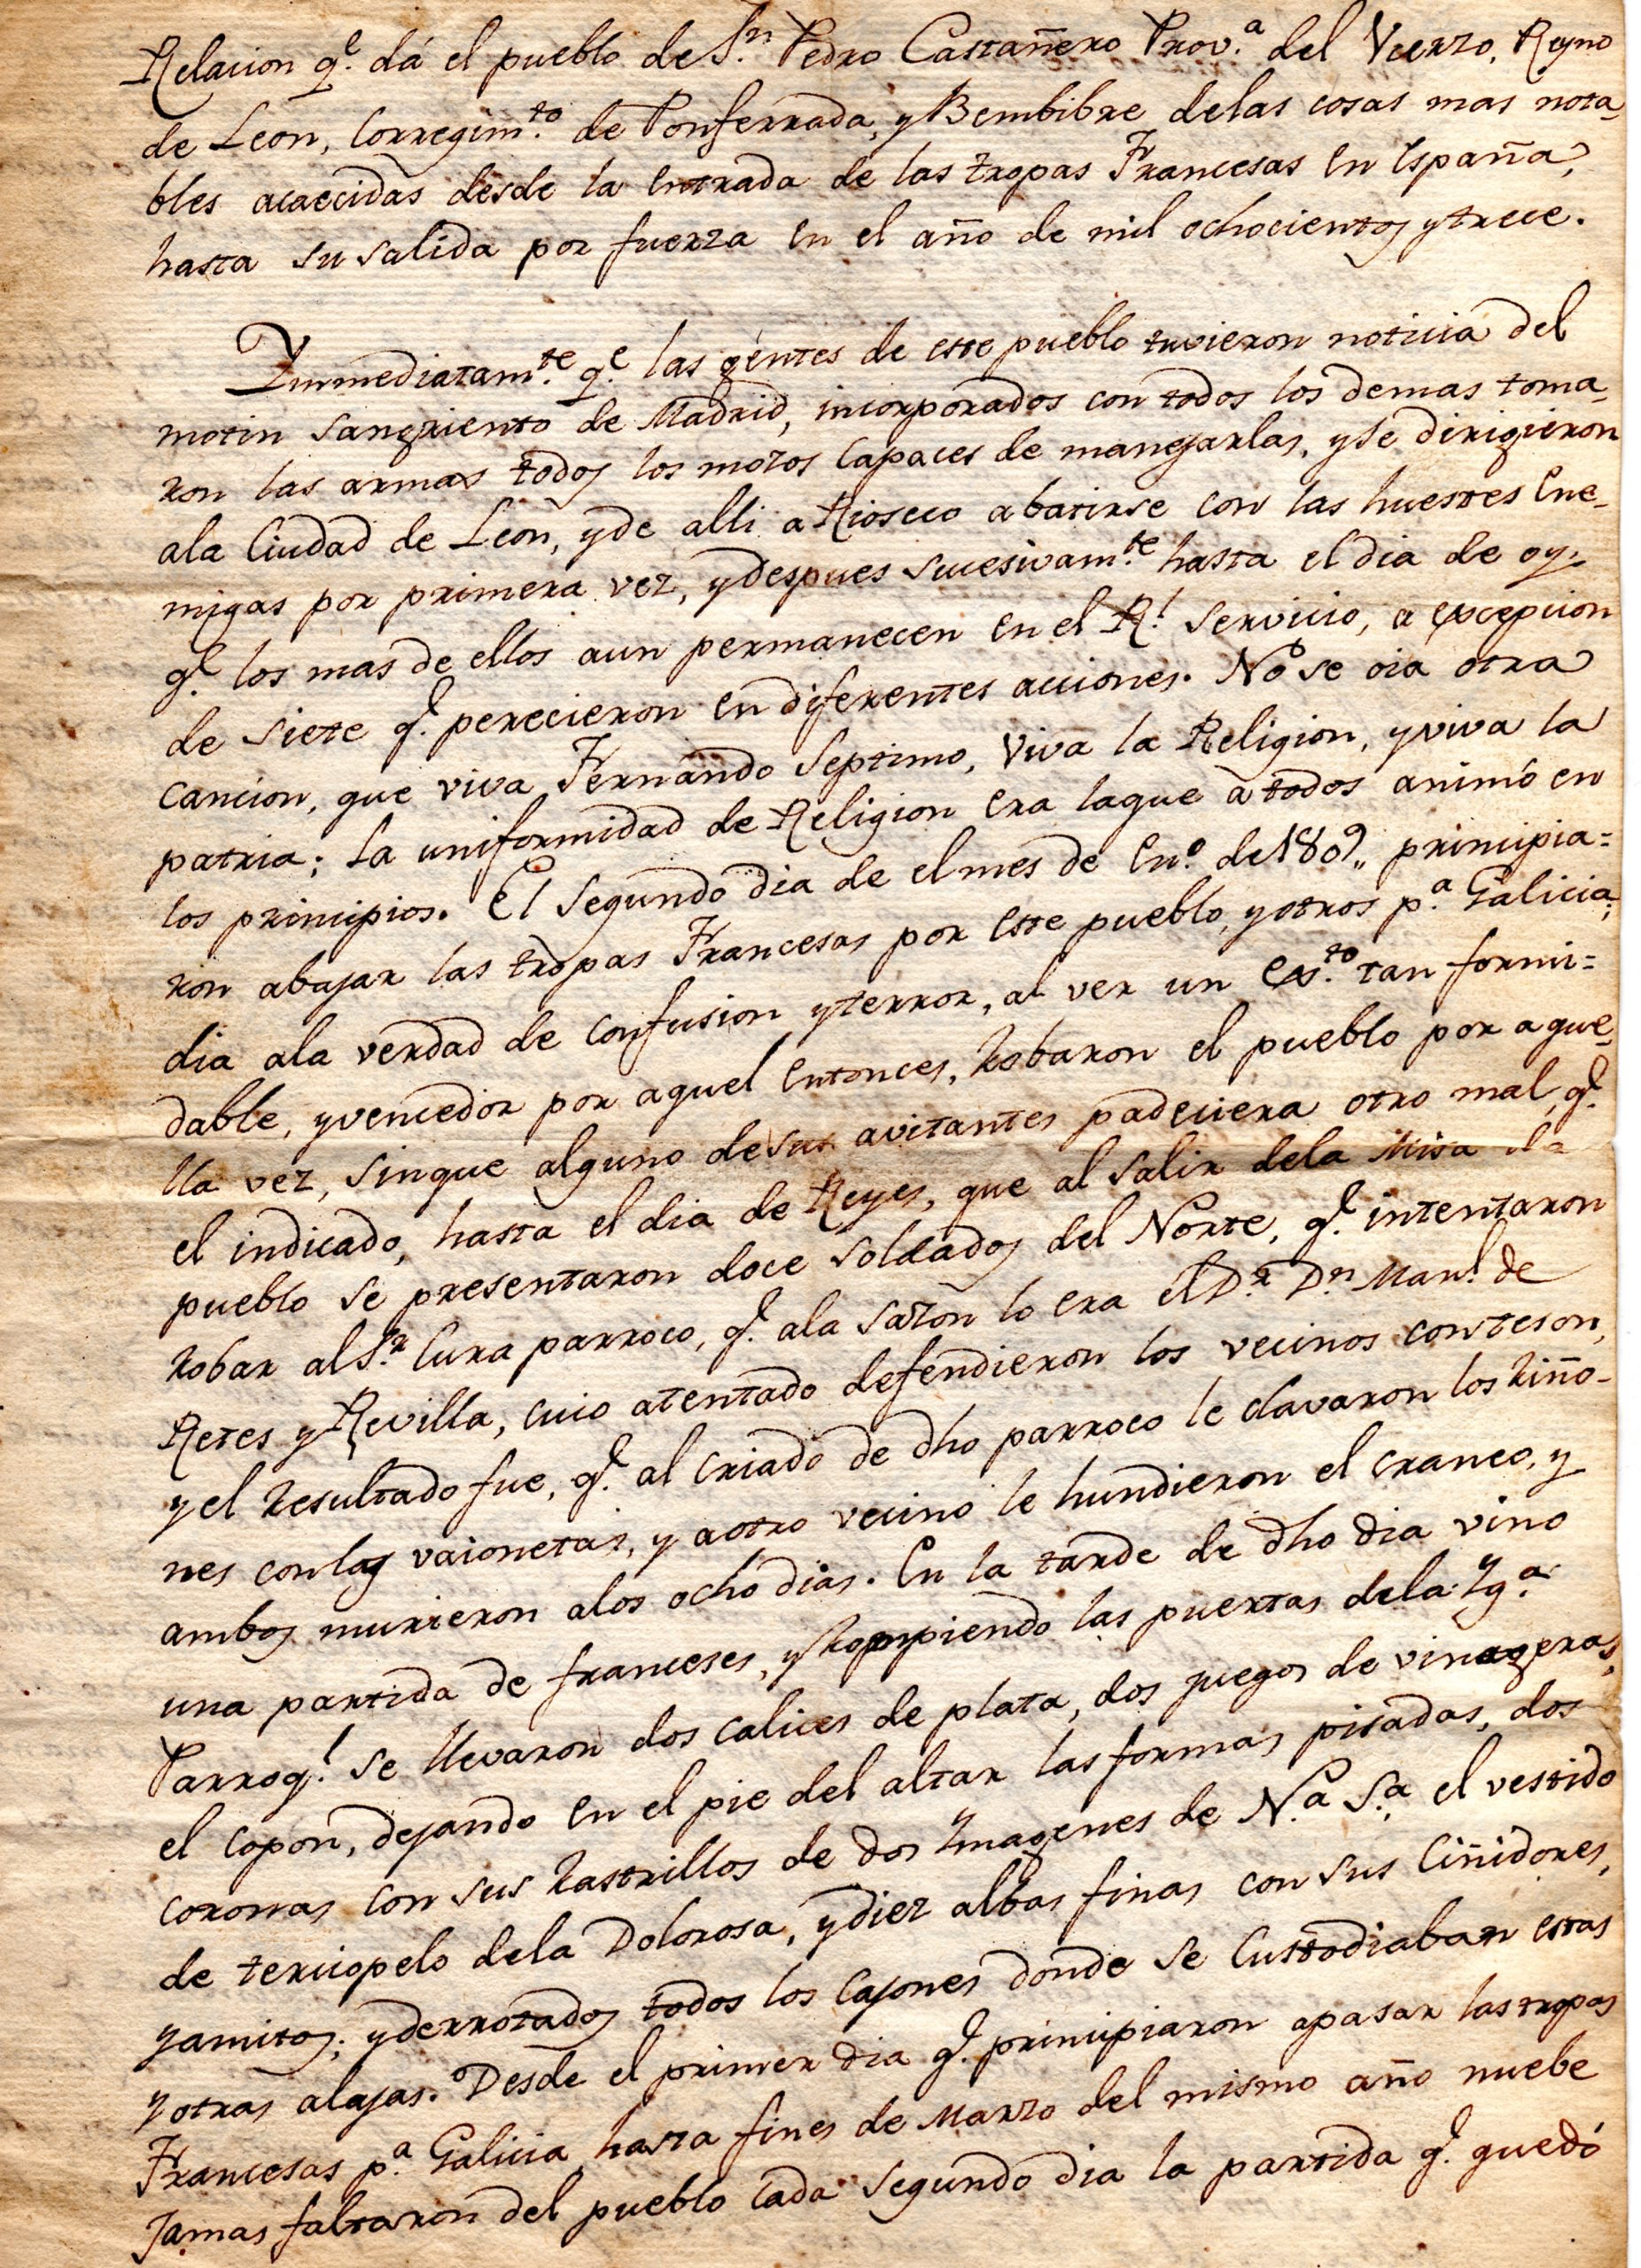 Relacion q.e dá el pueblo de S.n Pedro Castañero Prov.a del Vierzo, Reyno
de Leon, Corregim.to de Ponferrada, y Bembibre delas cosas mas nota-
bles acaecidas desde la entrada de las tropas Francesas en España,
hasta su salida por fuerza en el año de mil ochocientos y trece.
Inmediatam.te q.e las gentes de este pueblo tuvieron noticia del
motin sangriento de Madrid, incorporados con todos los demas toma-
ron las armas todos los mozos capaces de manejarlas, y se dirigieron
ala Ciudad de Leon, y de alli a Rioseco abatirse con las huestes ene-
migas por primera vez, y despues sucesivam.te hasta el dia de oy,
q.e los mas de ellos aun permanecen en el R.l servicio, a excepcion
de siete q.e perecieron en diferentes acciones. No se oia otra
cancion, que viva Fernando Septimo, Viva la Religion, y viva la
patria; la uniformidad de Religion era laque à todos animó en
los principios. El segundo dia de el mes de En.o de 1809,, principia=
ron abajar las tropas Francesas por este pueblo, y otros p.a Galicia;
dia ala verdad de confusion y terror, al ver un Ex.to tan formi=
dable, y vencedor por aquel entonces, robaron el pueblo por aque-
lla vez, sinque alguno de sus avitantes padeciera otro mal, q.e
el indicado, hasta el dia de Reyes, que al salir dela Misa de
pueblo se presentaron doce soldados del Norte, q.e intentaron
robar al S.r Cura parroco, q.e ala sazon lo era el D.r D.n Man.l de
Retes y Revilla, cuio atentado defendieron los vecinos con teson,
y el resultado fue, q.e al criado de dho parroco le clavaron los riño-
nes con las vaionetas, y a otro vecino le hundieron el craneo, y
ambos murieron alos ocho dias. En la tarde de dho dia vino
una partida de franceses, y rompiendo las puertas dela Ig.a
Parroq.l se llevaron dos calices de plata, dos juegos de vinageras,
el copon, dejando en el pie del altar las formas pisadas, dos
coronas con sus rastrillos de dos Imagenes de N.a S.a el vestido
de terciopelo dela Dolorosa, y diez albas finas con sus Ciñidores,
y amitos; y derrotados todos los cajones donde se Custodiaban estas
y otras alajas. Desde el primer dia q.e principiaron apasar las tropas
Francesas p.a Galicia hasta fines de Marzo del mismo año nuebe
Jamas faltaron del pueblo cada segundo dia la partida q.e quedó